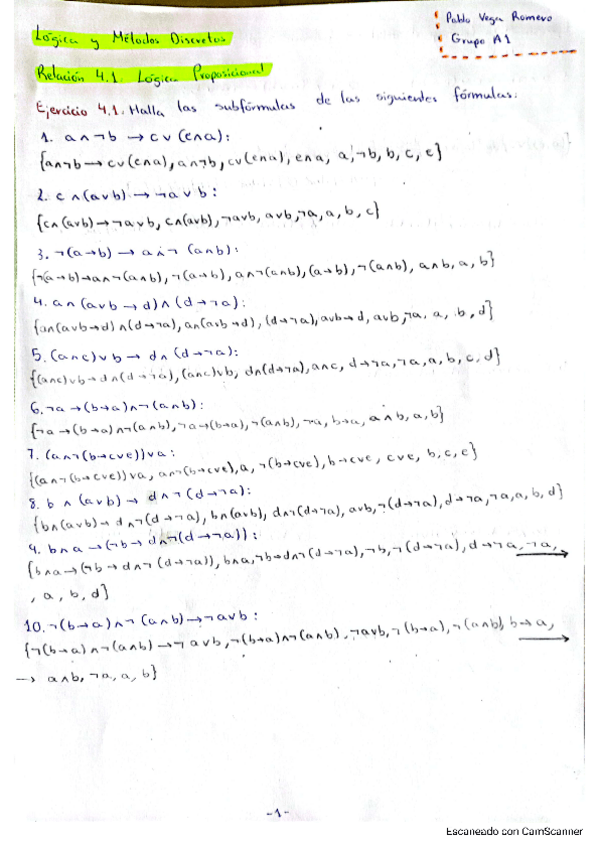 Pablo Vega Romero
Grupo A1
Lógica y Métodos Discretos
Relación 4.1. Lógica Proposicional
Ejercicio 4.1. Halla las subfórmulas de las siguientes fórmulas:
1. a∧¬b → c∨(e∧a):
{a∧¬b→c∨(e∧a), a∧¬b, c∨(e∧a), e∧a, a, ¬b, b, c, e}
2. c∧(a∨b) → ¬a∨b:
{c∧(a∨b)→¬a∨b, c∧(a∨b), ¬a∨b, a∨b, ¬a, a, b, c}
3. ¬(a→b) → a∧¬(a∧b):
{¬(a→b)→a∧¬(a∧b), ¬(a→b), a∧¬(a∧b), (a→b), ¬(a∧b), a∧b, a, b}
4. a∧(a∨b→d)∧(d→¬a):
{a∧(a∨b→d)∧(d→¬a), a∧(a∨b→d), (d→¬a), a∨b→d, a∨b, ¬a, a, b, d}
5. (a∧c)∨b → d∧(d→¬a):
{(a∧c)∨b→d∧(d→¬a), (a∧c)∨b, d∧(d→¬a), a∧c, d→¬a, ¬a, a, b, c, d}
6. ¬a→(b→a)∧¬(a∧b):
{¬a→(b→a)∧¬(a∧b), ¬a→(b→a), ¬(a∧b), ¬a, b→a, a∧b, a, b}
7. (a∧¬(b→c∨e))∨a:
{(a∧¬(b→c∨e))∨a, a∧¬(b→c∨e), a, ¬(b→c∨e), b→c∨e, c∨e, b, c, e}
8. b∧(a∨b) → d∧¬(d→¬a):
{b∧(a∨b)→d∧¬(d→¬a), b∧(a∨b), d∧¬(d→¬a), a∨b, ¬(d→¬a), d→¬a, ¬a, a, b, d}
9. b∧a→(¬b→d∧¬(d→¬a)):
{b∧a→(¬b→d∧¬(d→¬a)), b∧a, ¬b→d∧¬(d→¬a), ¬b, ¬(d→¬a), d→¬a, ¬a, →
, a, b, d}
10. ¬(b→a)∧¬(a∧b)→¬a∨b:
{¬(b→a)∧¬(a∧b)→¬a∨b, ¬(b→a)∧¬(a∧b), ¬a∨b, ¬(b→a), ¬(a∧b), b→a, →
→ a∧b, ¬a, a, b}
-1-
Escaneado con CamScanner